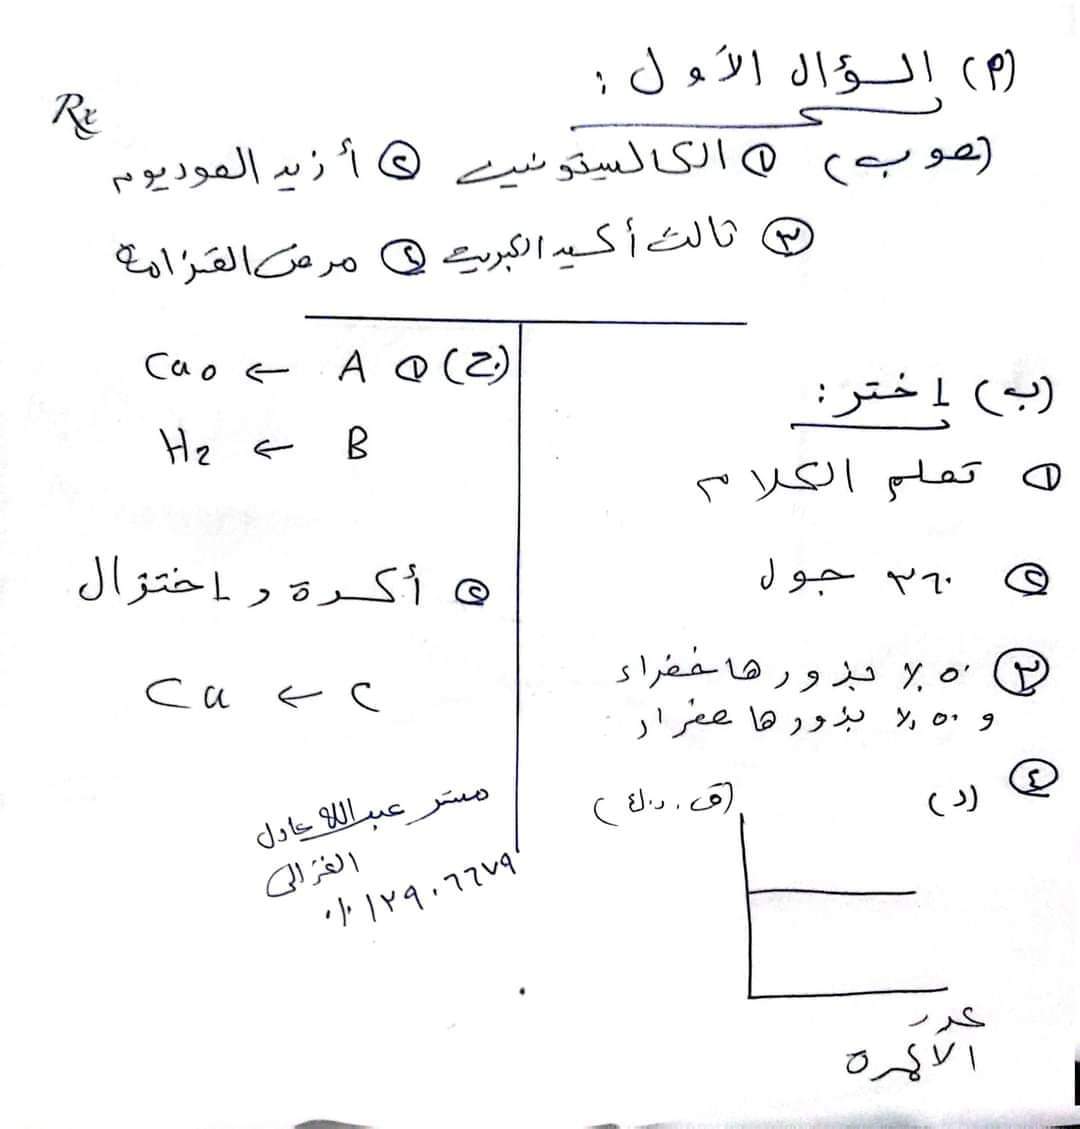 (م) السؤال الأول :
Rx
(صوب) ① الكالسيتونين ② أزيد الصوديوم
③ ثالث أكسيد الكبريت ④ مرض القزامة
(ب) اختر :
① تعلم الكلام
② ٣٦٠ جول
③ ٥٠٪ بذورها خضراء
و ٥٠٪ بذورها صفراء
④ (د)
(ق.د.ك)
عدد
الأعمدة
(ج) ① A ← CaO
B ← H2
② أكسدة و اختزال
C ← Cu
مستر عبدالله عادل
الغزالى